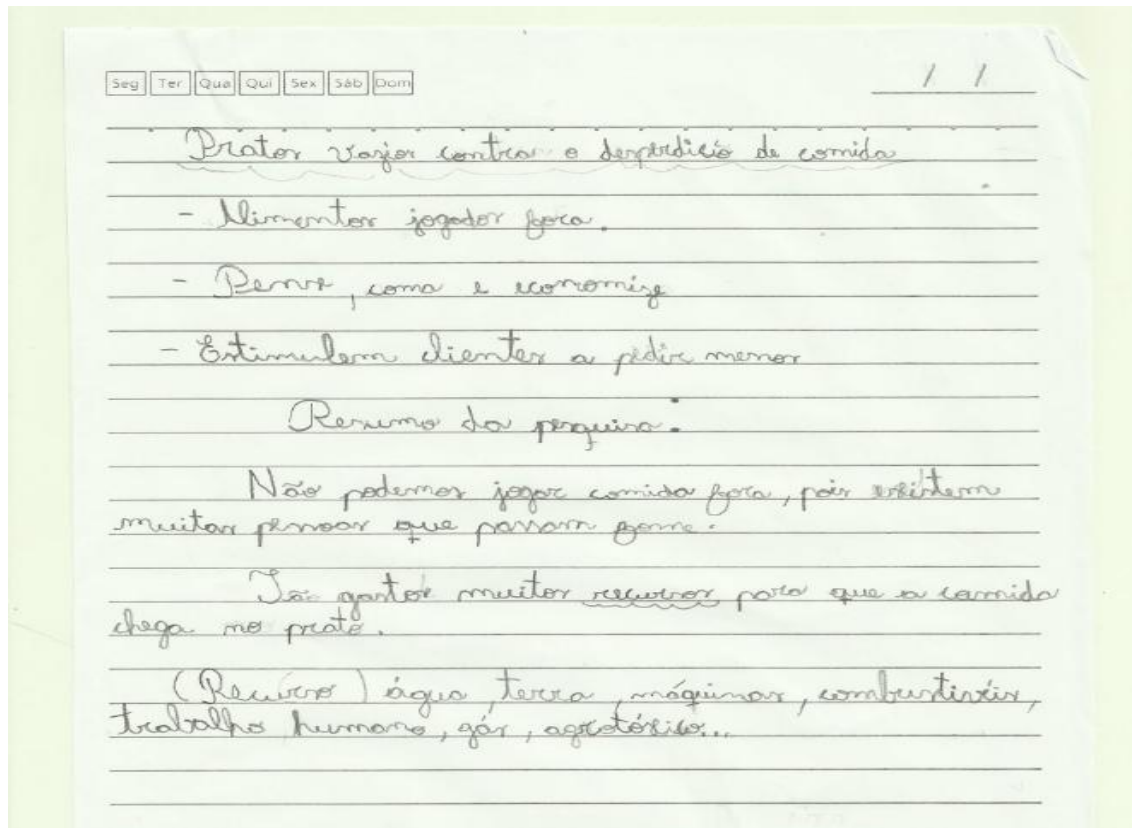 Seg Ter Qua Qui Sex Sáb Dom
/ /
Pratos vazios contra o desperdício de comida
- Alimentos jogados fora.
- Pense, coma e economize
- Estimulem clientes a pedir menos
Resumo da pesquisa:
Não podemos jogar comida fora, pois existem
muitas pessoas que passam fome.
São gastos muitos recursos para que a comida
chega no prato.
(Recurso) água, terra, máquinas, combustíveis,
trabalho humano, gás, agrotóxico...